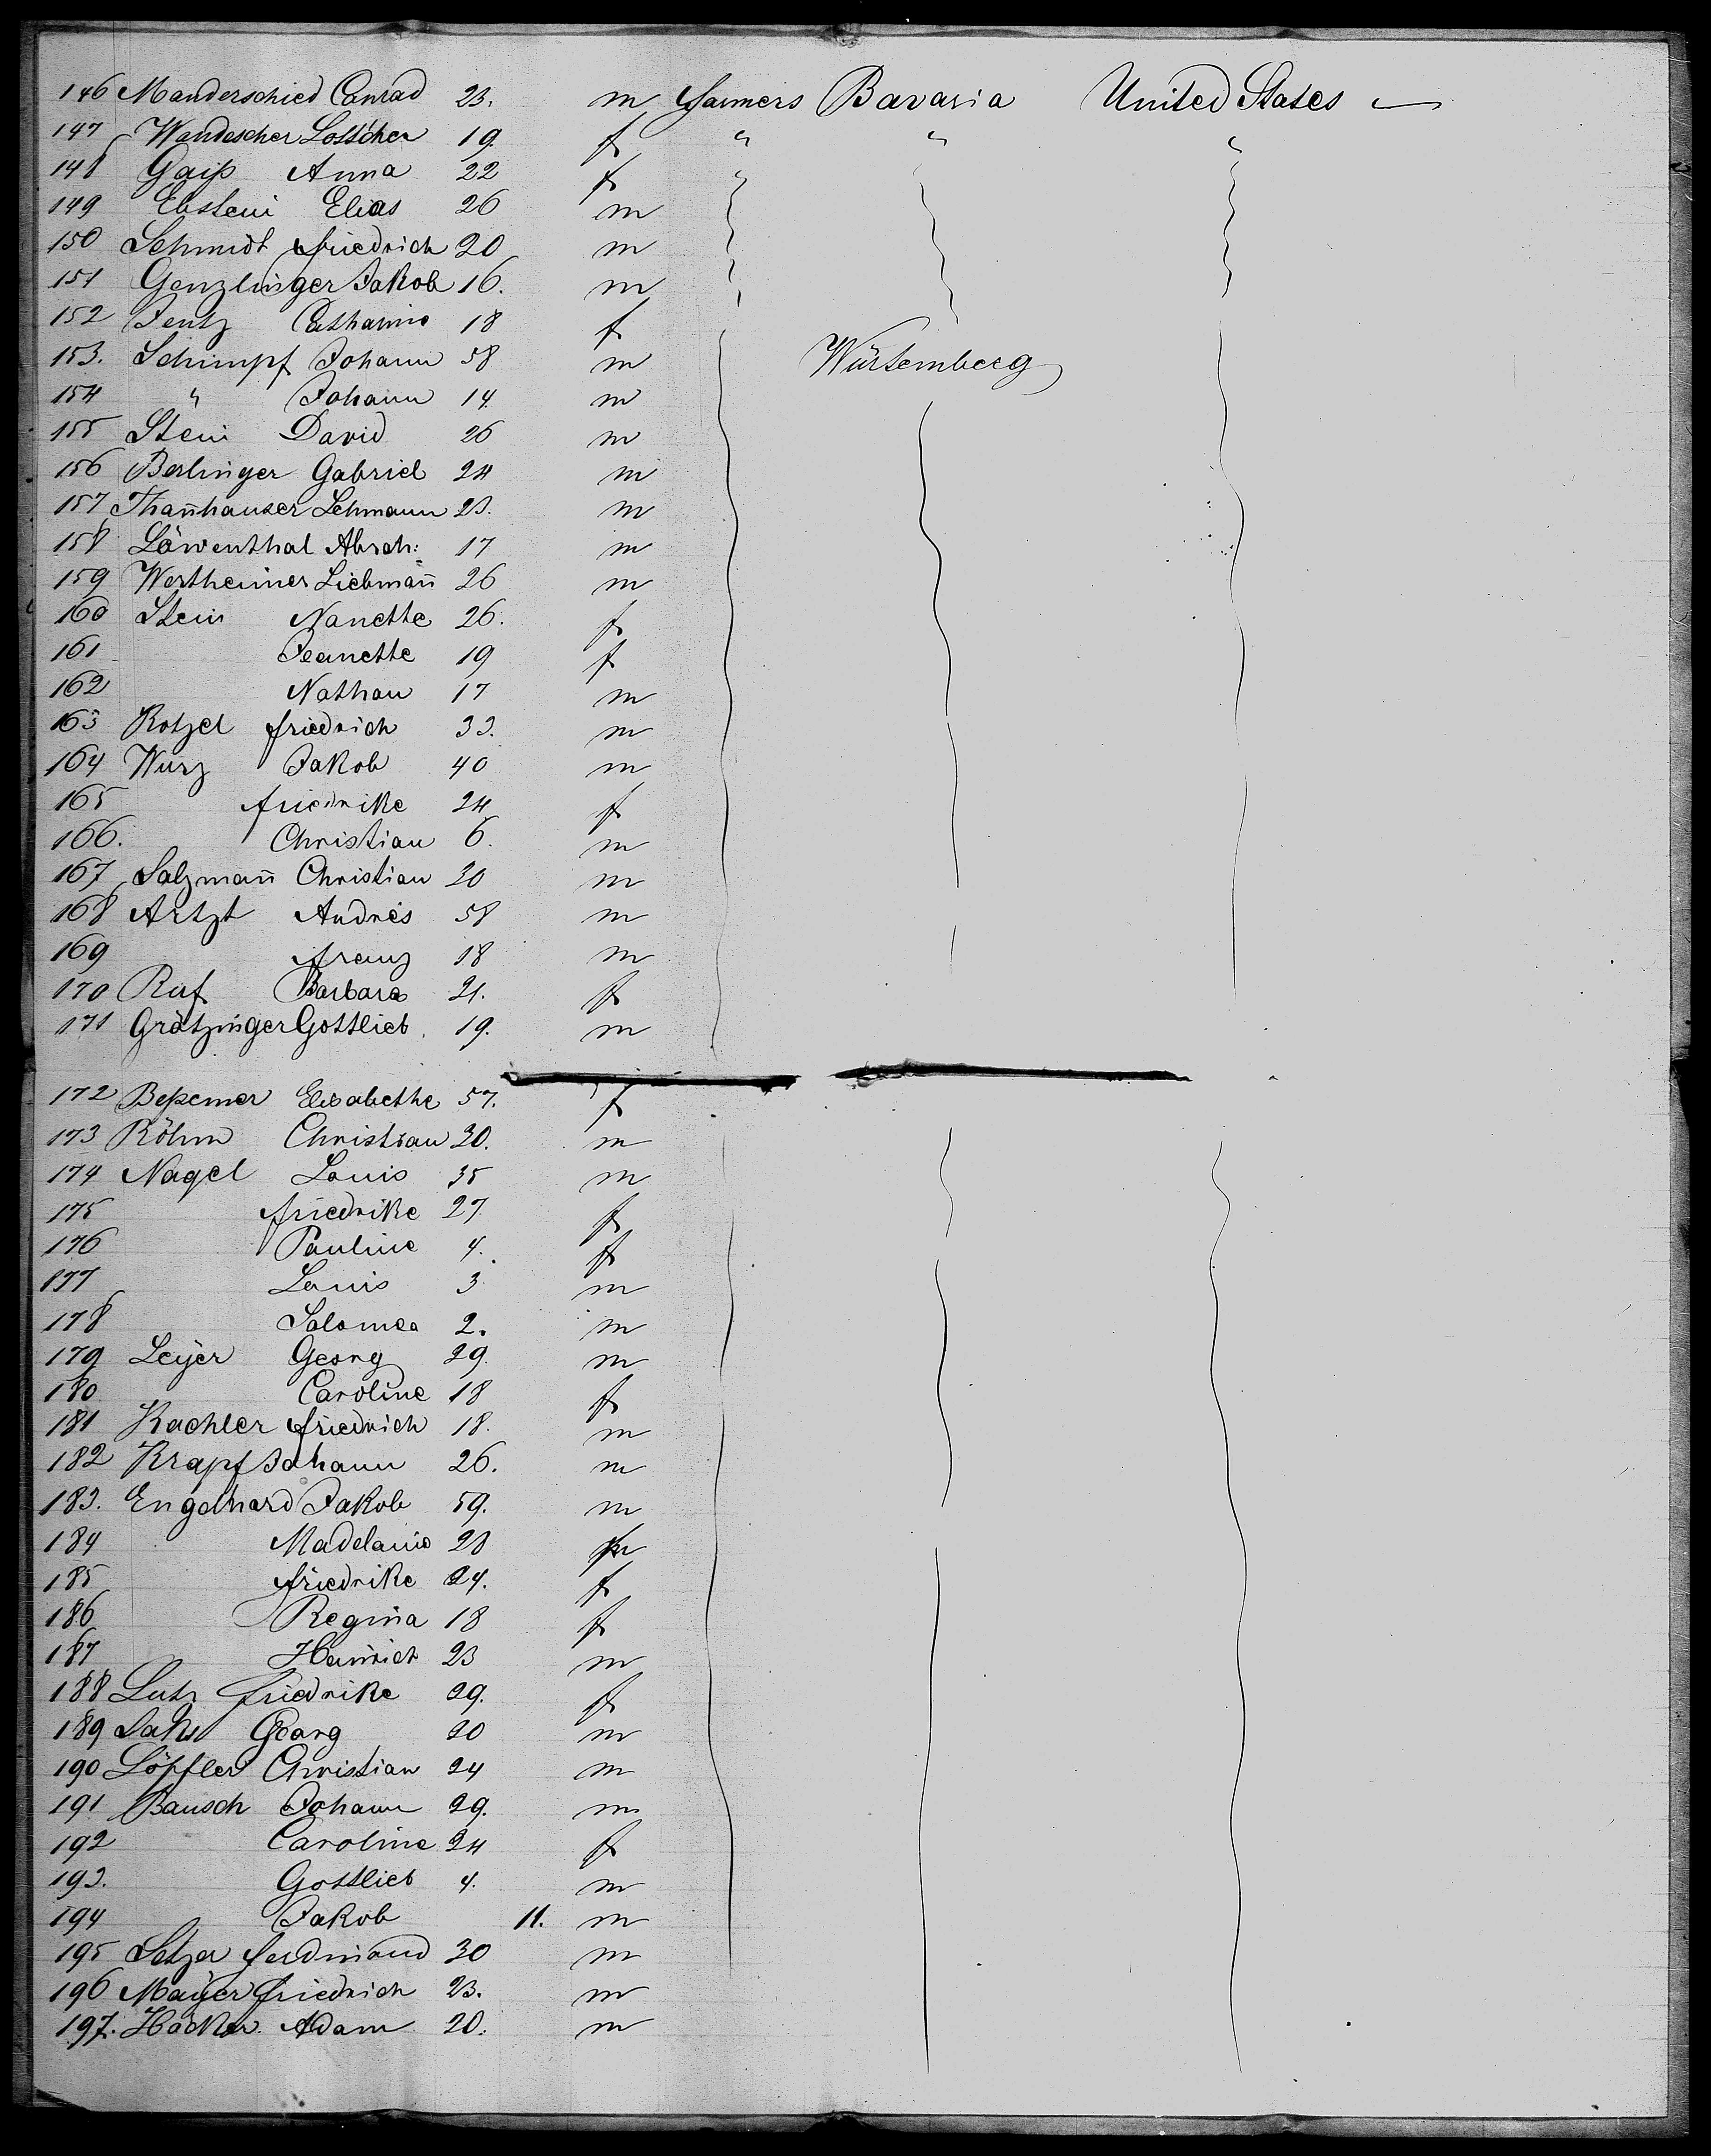 146 Manderschied Conrad 23. m Farmers Bavaria United States —
147 Wandescher Lottchen 19. f " " "
148 Gaiß Anna 22 f "
149 Ebstein Elias 26 m
150 Schmidt Friedrich 20 m
151 Genzlinger Jakob 16. m
152 Jentz Catharine 18 f
153. Schimpf Johann 58 m Würtemberg
154 " Johann 14. m
155 Stein David 26 m
156 Berlinger Gabriel 24 m
157 Than̄hauser Lehmann 23. m
158 Löwenthal Abrah: 17 m
159 Wertheimer Liebman̄ 26 m
160 Stein Nanette 26. f
161 Jeanette 19 f
162 Nathan 17 m
163 Rotzel Friedrich 33. m
164 Wurz Jakob 40 m
165 Friedrike 24 f
166. Christian 6. m
167 Salzman̄ Christian 30 m
168 Artzt Andres 58 m
169 Franz 18 m
170 Ruf Barbara 21. f
171 Grätzinger Gottlieb 19. m
172 Beßemer Elisabethe 57. f
173 Röhm Christian 30. m
174 Nagel Louis 35 m
175 Friedrike 27. f
176 Pauline 4. f
177 Louis 3 m
178 Salomea 2. m
179 Leyer Georg 29. m
180 Caroline 18 f
181 Kachler Friedrich 18. m
182 Krapf Johann 26. m
183. Engelhard Jakob 59. m
184 Madelaine 28
185 Friedrike 24. f
186 Regina 18 f
187 Heinrich 23 m
188 Lutz Friedrike 29. f
189 Georg 20 m
190 Löffler Christian 24 m
191 Bausch Johann 29. m
192 Caroline 24 f
193. Gottlieb 4. m
194 Jakob 11. m
195 Setzer Ferdinand 30 m
196 Mayer Friedrich 23. m
197. Häcker Adam 20. m